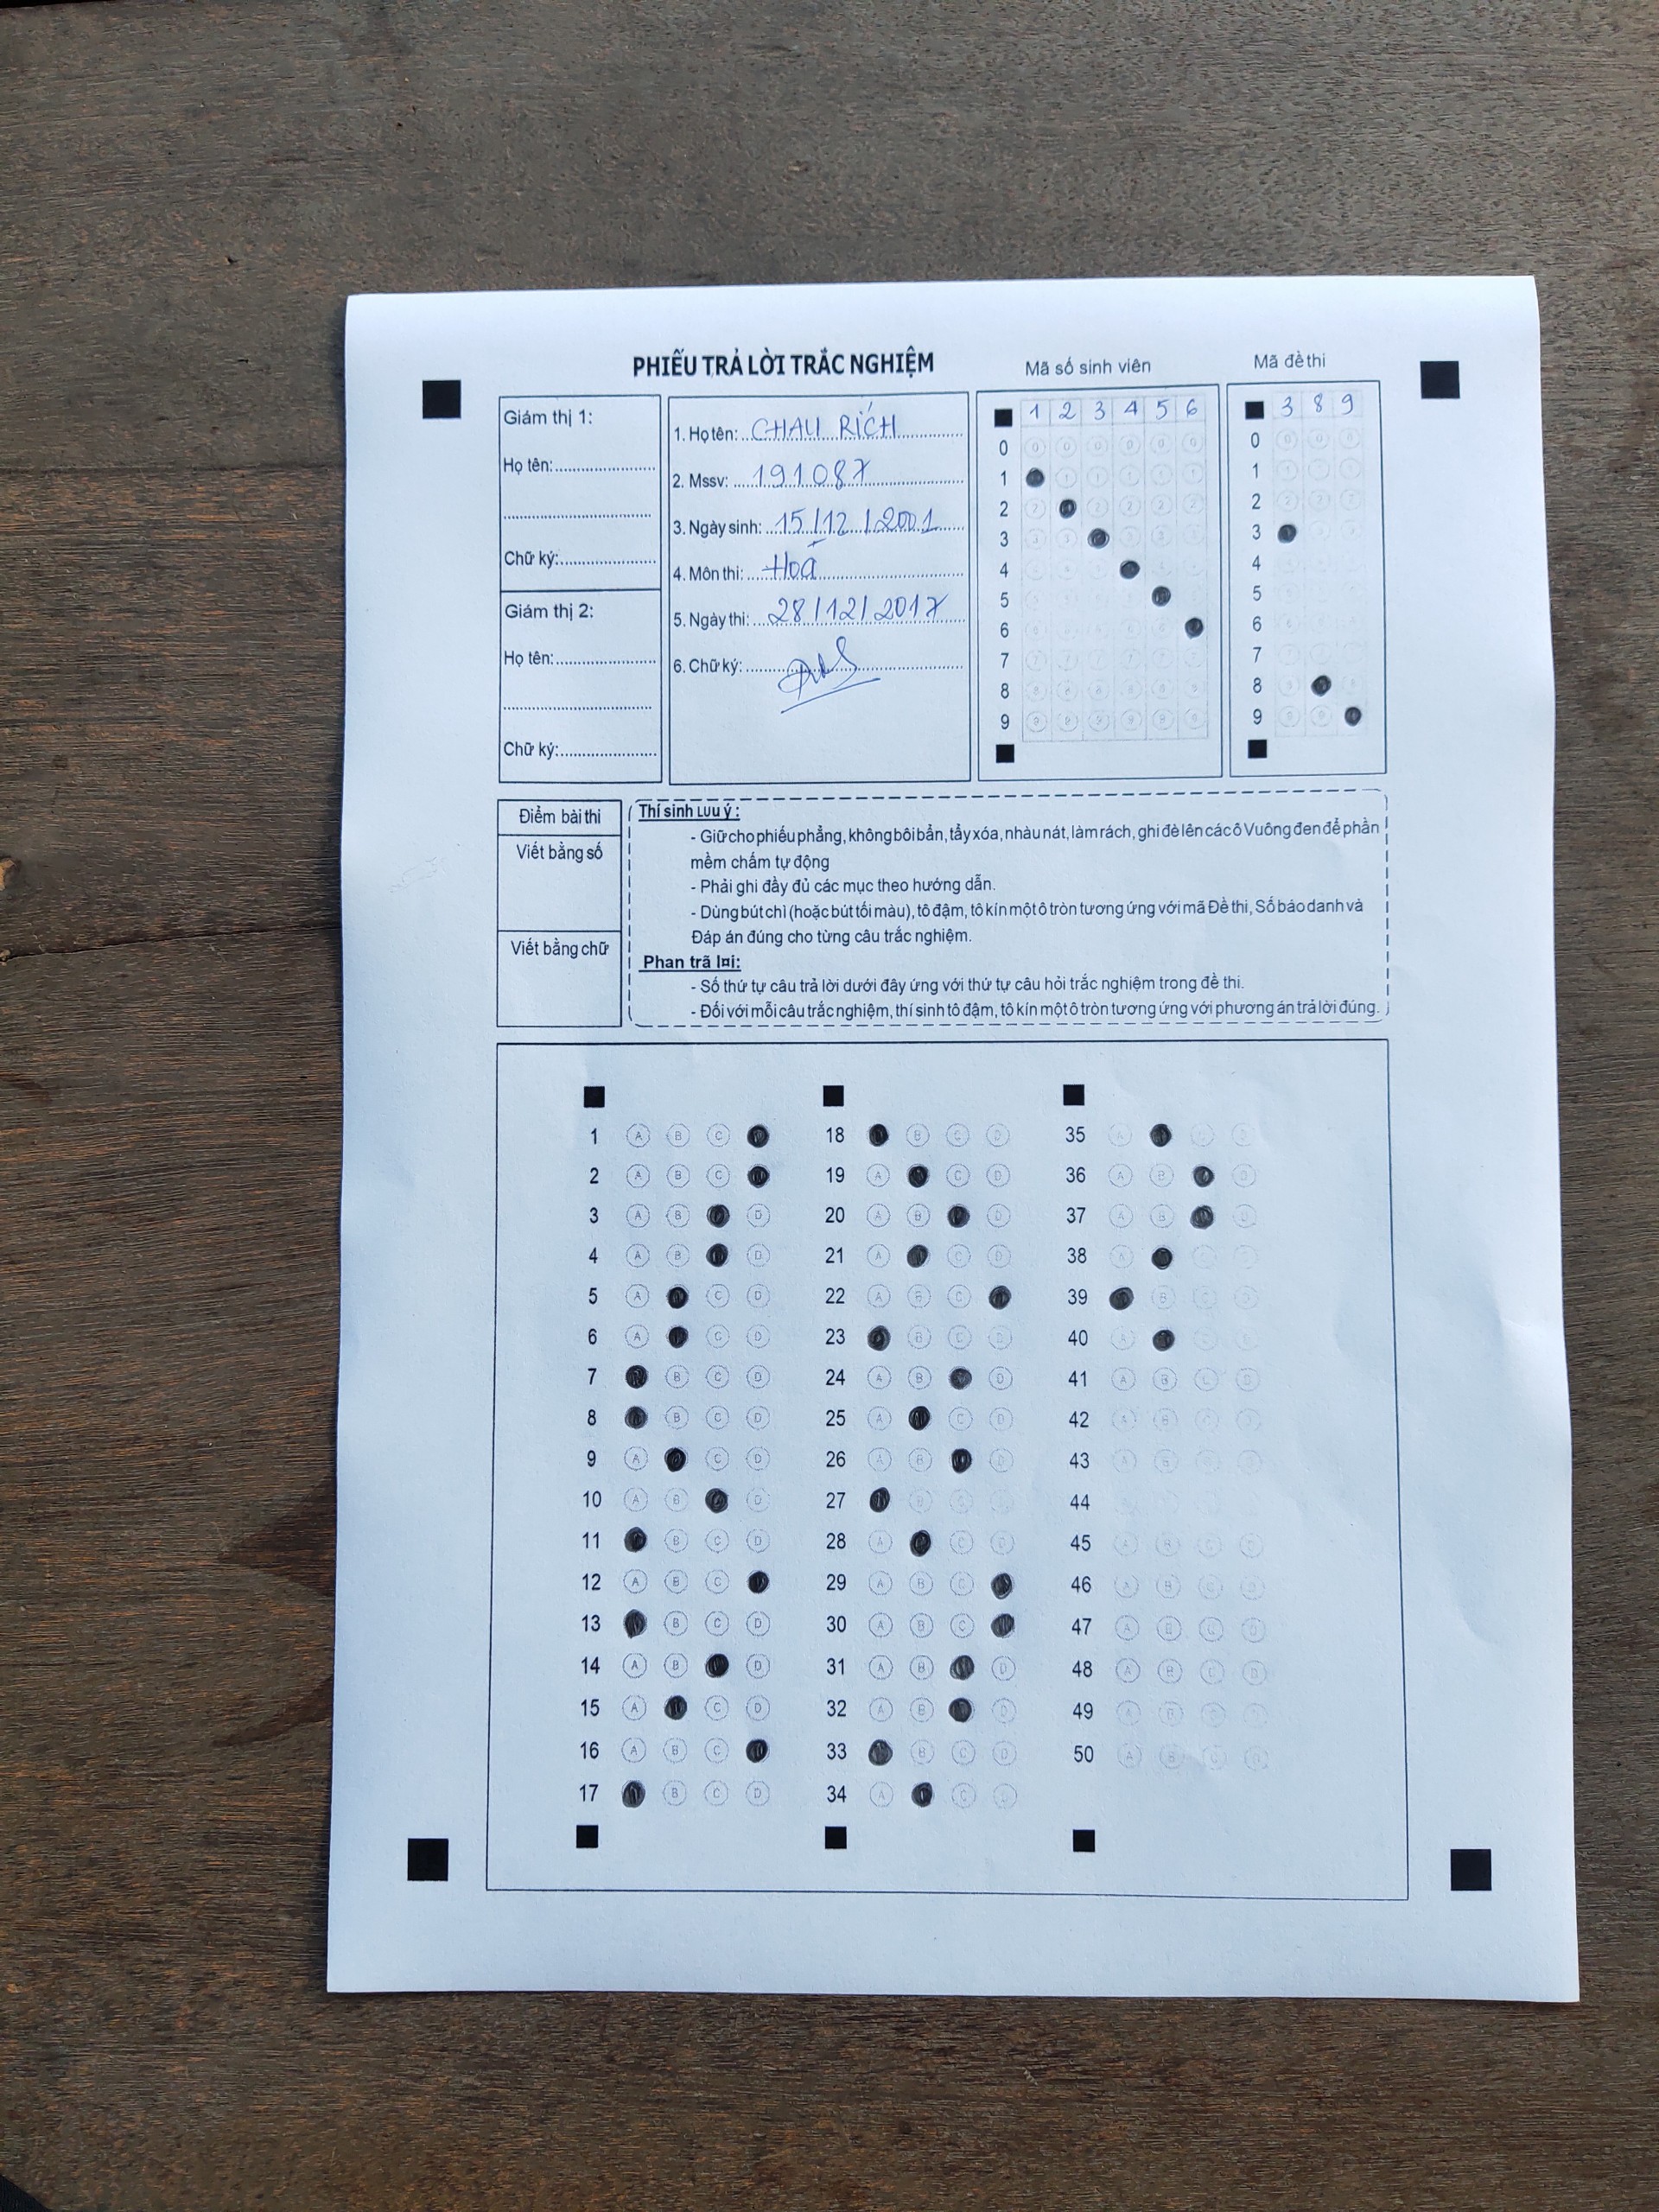 PHIẾU TRẢ LỜI TRẮC NGHIỆM
Mã số sinh viên
Mã đề thi
Giám thị 1:
Họ tên:
Chữ ký:
Giám thị 2:
Họ tên:
Chữ ký:
1. Họ tên: CHAU RÍCH
2. Mssv: 191087
3. Ngày sinh: 15/12/2001
4. Môn thi: Hoá
5. Ngày thi: 28/12/2017
6. Chữ ký:
1 2 3 4 5 6
0
1
2
3
4
5
6
7
8
9
3 8 9
0
1
2
3
4
5
6
7
8
9
Điểm bài thi
Viết bằng số
Viết bằng chữ
Thí sinh Lưu ý:
- Giữ cho phiếu phẳng, không bôi bẩn, tẩy xóa, nhàu nát, làm rách, ghi đè lên các ô Vuông đen để phần
mềm chấm tự động
- Phải ghi đầy đủ các mục theo hướng dẫn.
- Dùng bút chì (hoặc bút tối màu), tô đậm, tô kín một ô tròn tương ứng với mã Đề thi, Số báo danh và
Đáp án đúng cho từng câu trắc nghiệm.
Phan trã l¤i:
- Số thứ tự câu trả lời dưới đây ứng với thứ tự câu hỏi trắc nghiệm trong đề thi.
- Đối với mỗi câu trắc nghiệm, thí sinh tô đậm, tô kín một ô tròn tương ứng với phương án trả lời đúng.
1 A B C
2 A B C
3 A B D
4 A B D
5 A C D
6 A C D
7 B C D
8 B C D
9 A C D
10 A B D
11 B C D
12 A B C
13 B C D
14 A B D
15 A C D
16 A B C
17 B C D
18 B C D
19 A C D
20 A B D
21 A C D
22 A B C
23 B C D
24 A B D
25 A C D
26 A B D
27
28 A C D
29 A B C
30 A B C
31 A B D
32 A B D
33 B C D
34 A C D
35
36 A B D
37 A B D
38
39
40
41 A B C D
42
43
44
45 A B C D
46 A B C D
47 A B C D
48 A B C D
49
50 A B C D